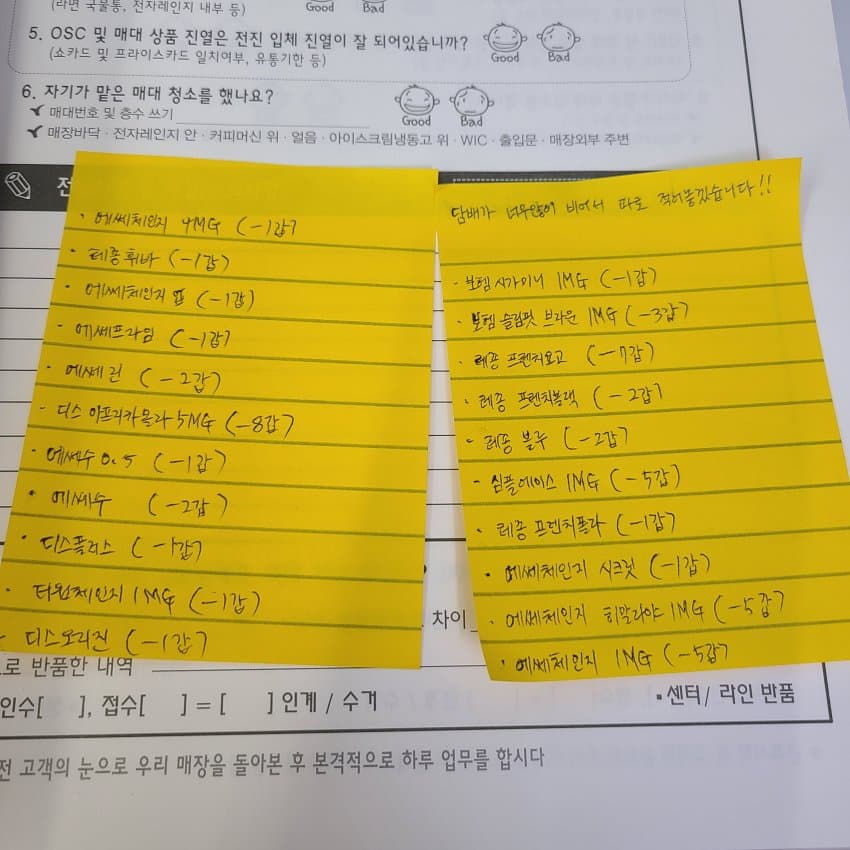 (라면 국물통, 전자레인지 내부 등)
Good Bad
5. OSC 및 매대 상품 진열은 전진 입체 진열이 잘 되어있습니까?
(쇼카드 및 프라이스카드 일치여부, 유통기한 등)
Good Bad
6. 자기가 맡은 매대 청소를 했나요?
매대번호 및 층수 쓰기
Good Bad
매장바닥 · 전자레인지 안 · 커피머신 위 · 얼음 · 아이스크림냉동고 위 · WIC · 출입문 · 매장외부 주변
전
· 에쎄체인지 4MG (-1갑)
· 레종휘바 (-1갑)
· 에쎄체인지 (-1갑)
· 에쎄프라임 (-1갑)
· 에쎄 린 (-2갑)
· 디스 아프리카몰라 5MG (-8갑)
· 에쎄수 0.5 (-1갑)
· 에쎄수 (-2갑)
· 디스플러스 (-1갑)
· 타임체인지 1MG (-1갑)
· 디스오리진 (-1갑)
담배가 너무많이 비어서 따로 적어놓겠습니다!!
· 보헴시가미니 1MG (-1갑)
· 보헴 슬림핏 브라운 1MG (-3갑)
· 레종 프렌치요고 (-7갑)
· 레종 프렌치블랙 (-2갑)
· 레종 블루 (-2갑)
· 심플에이스 1MG (-5갑)
· 레종 프렌치폴라 (-1갑)
· 에쎄체인지 시크릿 (-1갑)
· 에쎄체인지 히말라야 1MG (-5갑)
· 에쎄체인지 1MG (-5갑)
차이
로 반품한 내역
인수[ ], 접수[ ] = [ ] 인계 / 수거
▪센터/ 라인 반품
전 고객의 눈으로 우리 매장을 돌아본 후 본격적으로 하루 업무를 합시다